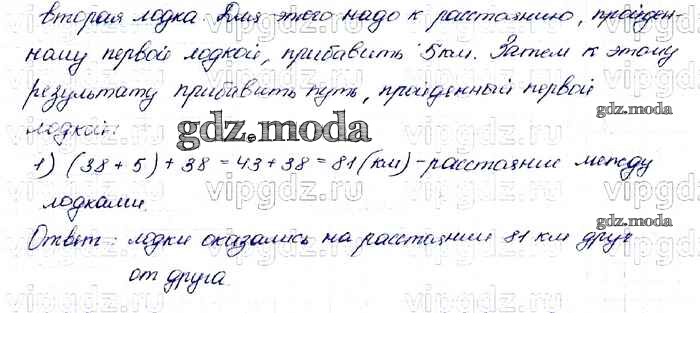 вторая лодка. Для этого надо к расстоянию, пройден-
ному первой лодкой, прибавить 5км. Затем к этому
результату прибавить путь, пройденный первой
лодкой.
gdz.moda
1) (38 + 5) + 38 = 43 + 38 = 81 (км) - расстояние между
vipgdz.ru
лодками.
gdz.moda
Ответ: лодки оказались на расстоянии 81 км друг
от друга.
vipgdz.ru